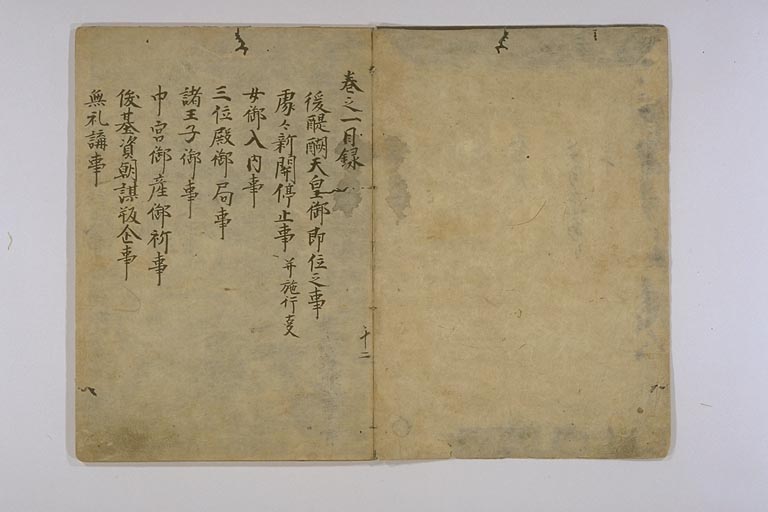 巻之一目録
後醍醐天皇御即位之事
處々新関停止事 并施行事
女御入内事
三位殿御局事
諸王子御事
中宮御産御祈事
俊基資朝謀叛企事
無礼講事
十二